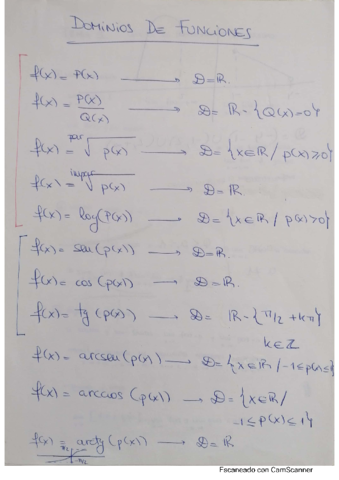 DOMINIOS DE FUNCIONES
f(x) = P(x) → D = ℝ
f(x) = P(x)/Q(x) → D = ℝ - {Q(x)=0}
f(x) = par√p(x) → D = {x∈ℝ / p(x)≥0}
f(x) = impar√p(x) → D = ℝ
f(x) = log(P(x)) → D = {x∈ℝ / p(x)>0}
f(x) = sen(p(x)) → D = ℝ.
f(x) = cos(p(x)) → D = ℝ.
f(x) = tg(p(x)) → D = ℝ - {π/2 + kπ}
k∈ℤ
f(x) = arcsen(p(x)) → D = {x∈ℝ / -1≤p(x)≤1}
f(x) = arccos(p(x)) → D = {x∈ℝ /
-1≤p(x)≤1}
f(x) = arctg(p(x)) → D = ℝ
Escaneado con CamScanner